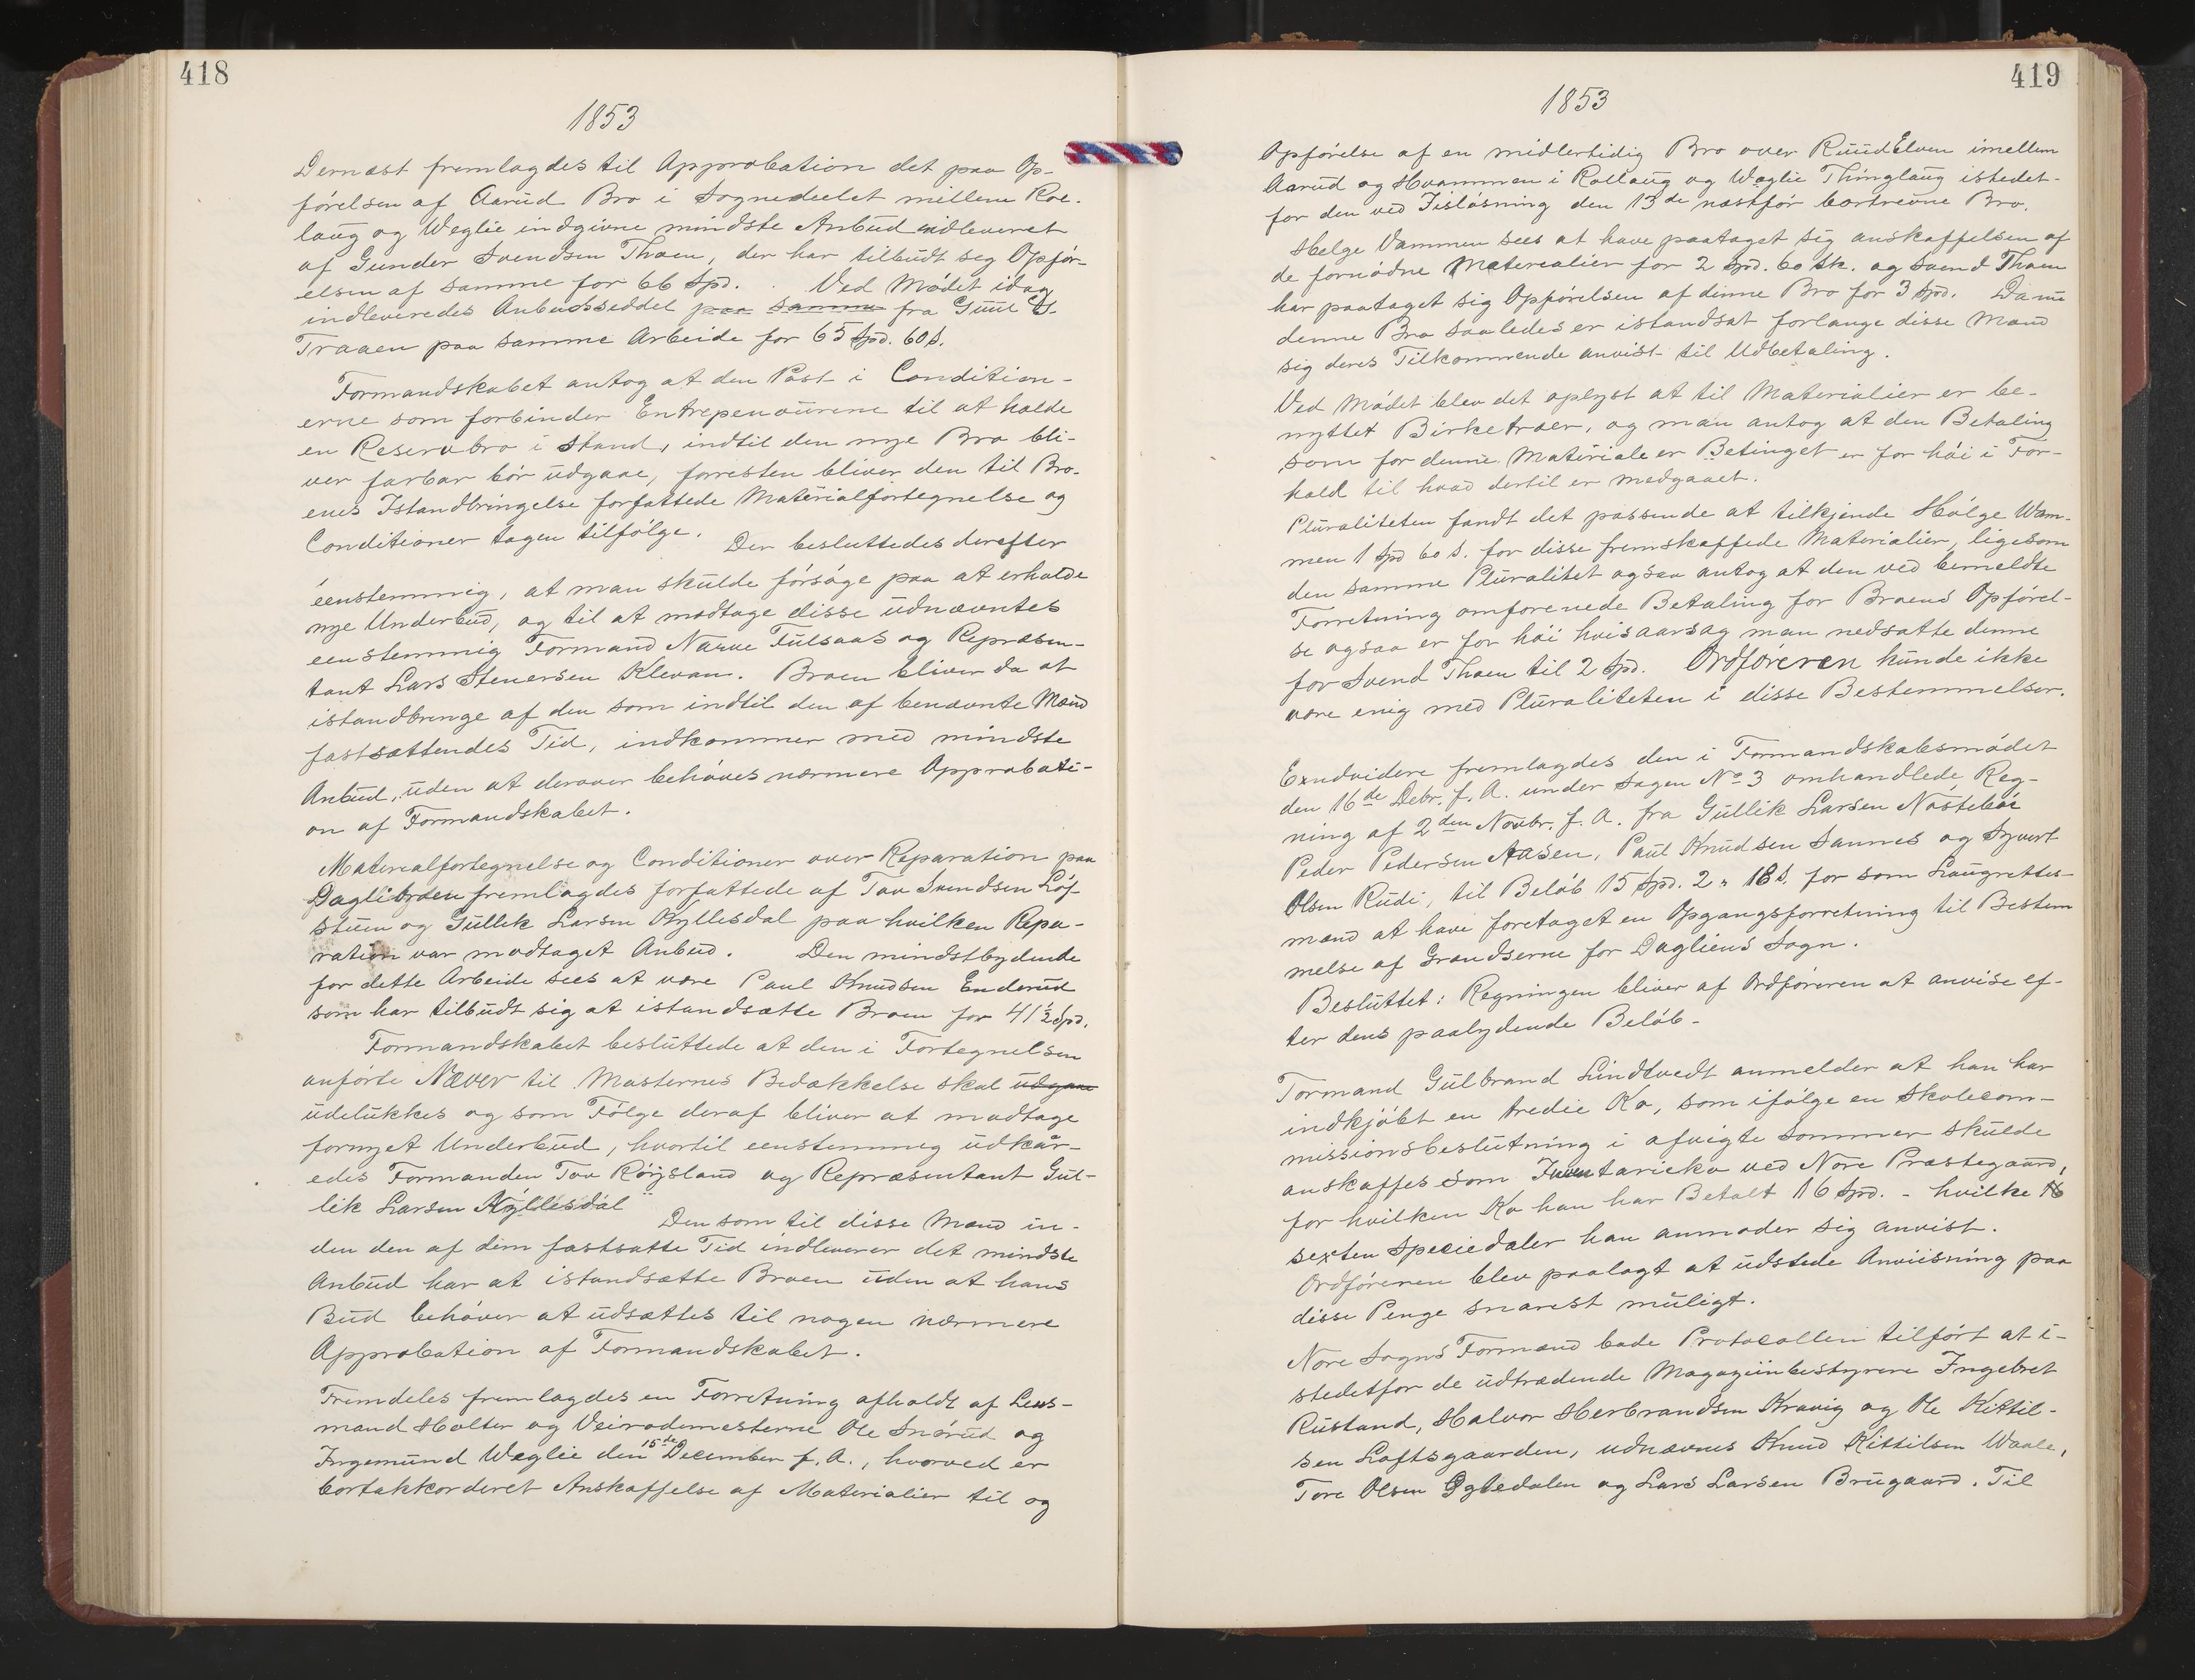 418
1853
Dernæst fremlagdes til Approbation det paa Op-
førelsen af Aarud Bro i Sognedeelet mellem Rol-
laug og Weglie indgivne mindste Anbud indleveret
af Gunder Svendsen Thoen, der har tilbudt seg Opfør-
elsen af samme for 66 Spd. . Ved Mødet idag
indleveredes Anbudsseddel paa samme fra Guul G.
Traaen paa samme Arbeide for 65 Spd. 60 s.
Formandskabet antog at den Post i Condition-
erne som forbinder Entrepenourene til at holde
en Reservebro i Stand, indtil den nye Bro bli-
ver farbar bør udgaae, forresten bliver den til Bro-
ens Istandbringelse forfattede Materialfortegnelse og
Conditioner tagen tilfølge. Der besluttedes derefter
éenstemmig, at man skulde forsøge paa at erholde
nye Underbud, og til at modtage disse udnævntes
eenstemmig Formand Narve Fulsaas og Repræsen-
tant Lars Stenersen Klevan. Broen bliver da at
istandbringe af den som indtil den af benævnte Mænd
fastsættendes Tid, indkommer med mindste
Anbud, uden at derover behøves nærmere Approbati-
on af Formandskabet.
Materialfortegnelse og Conditioner over Reparation paa
Daglibroen fremlagdes forfattede af Tov Svendsen Løf-
stuen og Gullik Larsen Kyllesdal paa hvilken Repa-
ration var modtaget Anbud. Den mindstbydende
for dette Arbeide sees at være Paul Knudsen Enderud
som har tilbudt sig at istandsætte Broen for 41½ Spd.
Formandskabet besluttede at den i Fortegnelsen
anførte Næver til Masternes Bedækkelse skal udgaae
udelukkes og som Følge deraf bliver at modtage
fornyet Underbud, hvortil eenstemmig udkår-
edes Formanden Tov Røisland og Repræsentant Gul-
lik Larsen Kyllesdal Den som til disse Mænd in-
den den af dem fastsatte Tid indleverer det mindste
Anbud har at istandsætte Broen uden at hans
Bud behøver at udsættes til nogen nærmere
Approbation af Formandskabet.
Fremdeles fremlagdes en Forretning afholdt af Lens-
mand Holter og Veirodemesterne Ole Snørud og
Ingemund Weglie den 15de December f. A., hvorved er
bortakkorderet Anskaffelse af Materialier til og
419
1853
Opførelse af en midlertidig Bro over RuudElven imellem
Aarud og Hvammen i Rollaug og Weglie Thinglaug istedet-
for den ved Iisløsning den 13de næstfør bortrevne Bro.
Helge Vammen sees at have paataget sig anskaffelsen af
de fornødne Materealier for 2 Spd. 60 sk. og Svend Thoen
har paataget sig Opførelsen af denne Bro for 3 Spd. Da nu
denne Bro saaledes er istandsat forlange disse Mænd
sig deres Tilkommende anvist til Udbetaling.
Ved Mødet blev det oplyst at til Materialier er be-
nyttet Birketræer, og man antog at den Betaling
som for denne Materiale er Betinget er for høi i For-
hold til hvad dertil er medgaaet.
Pluraliteten fandt det passende at tilkjende Hølge Wam-
men 1 Spd 60 s. for disse fremskaffede Materialier, ligesom
den samme Pluralitet ogsaa antog at den ved bemeldte
Forretning omforenede Betaling for Broens Opførel-
se ogsaa er for høi hvisaarsag man nedsatte denne
for Svend Thoen til 2 Spd. Ordføreren kunde ikke
være enig med Pluraliteten i disse Bestemmelser.
Exndvidere fremlagdes den i Formandskabsmødet
den 16de Debr. f. A. under Sagen No 3 omhandlede Reg-
ning af 2den Novbr. f. A. fra Gullik Larsen Nøstebøe
Peder Pedersen Aasen, Paul Knudsen Sannes og Syvert
Olsen Rudi, til Beløb 15 Spd. 2 " 18 s. for som Laugrettes-
mænd at have foretaget en Opgangsforretning til Bestem
melse af Grændserne for Dagliens Sogn.
Besluttet: Regningen bliver af Ordføreren at anvise ef-
ter dens paalydende Beløb.
Formand Gulbrand Lindtvedt anmelder at han har
indkjøbt en tredie Ko, som ifølge en Skolecom-
missionsbeslutning i afvigte Sommer skulde
anskaffes som Inventarieko ved Nore Præstegaard,
for hvilken Ko han har Betalt 16 Spd. - hvilke 16
sexten Speciedaler han anmoder sig anvist.
Ordføreren blev paalagt at udstede Anviisning paa
disse Penge snarest muligt.
Nore Sogns Formænd bade Protocollen tilført at i-
stedetfor de udtrædende Magaziinbestyrere Ingebret
Rustand, Halvor Herbrandsen Kravig og Ole Kittil-
sen Loftsgaarden, udnævnes Knud Kittilsen Waale,
Tore Olsen Ggtedalen og Lars Larsen Brugaard. Til